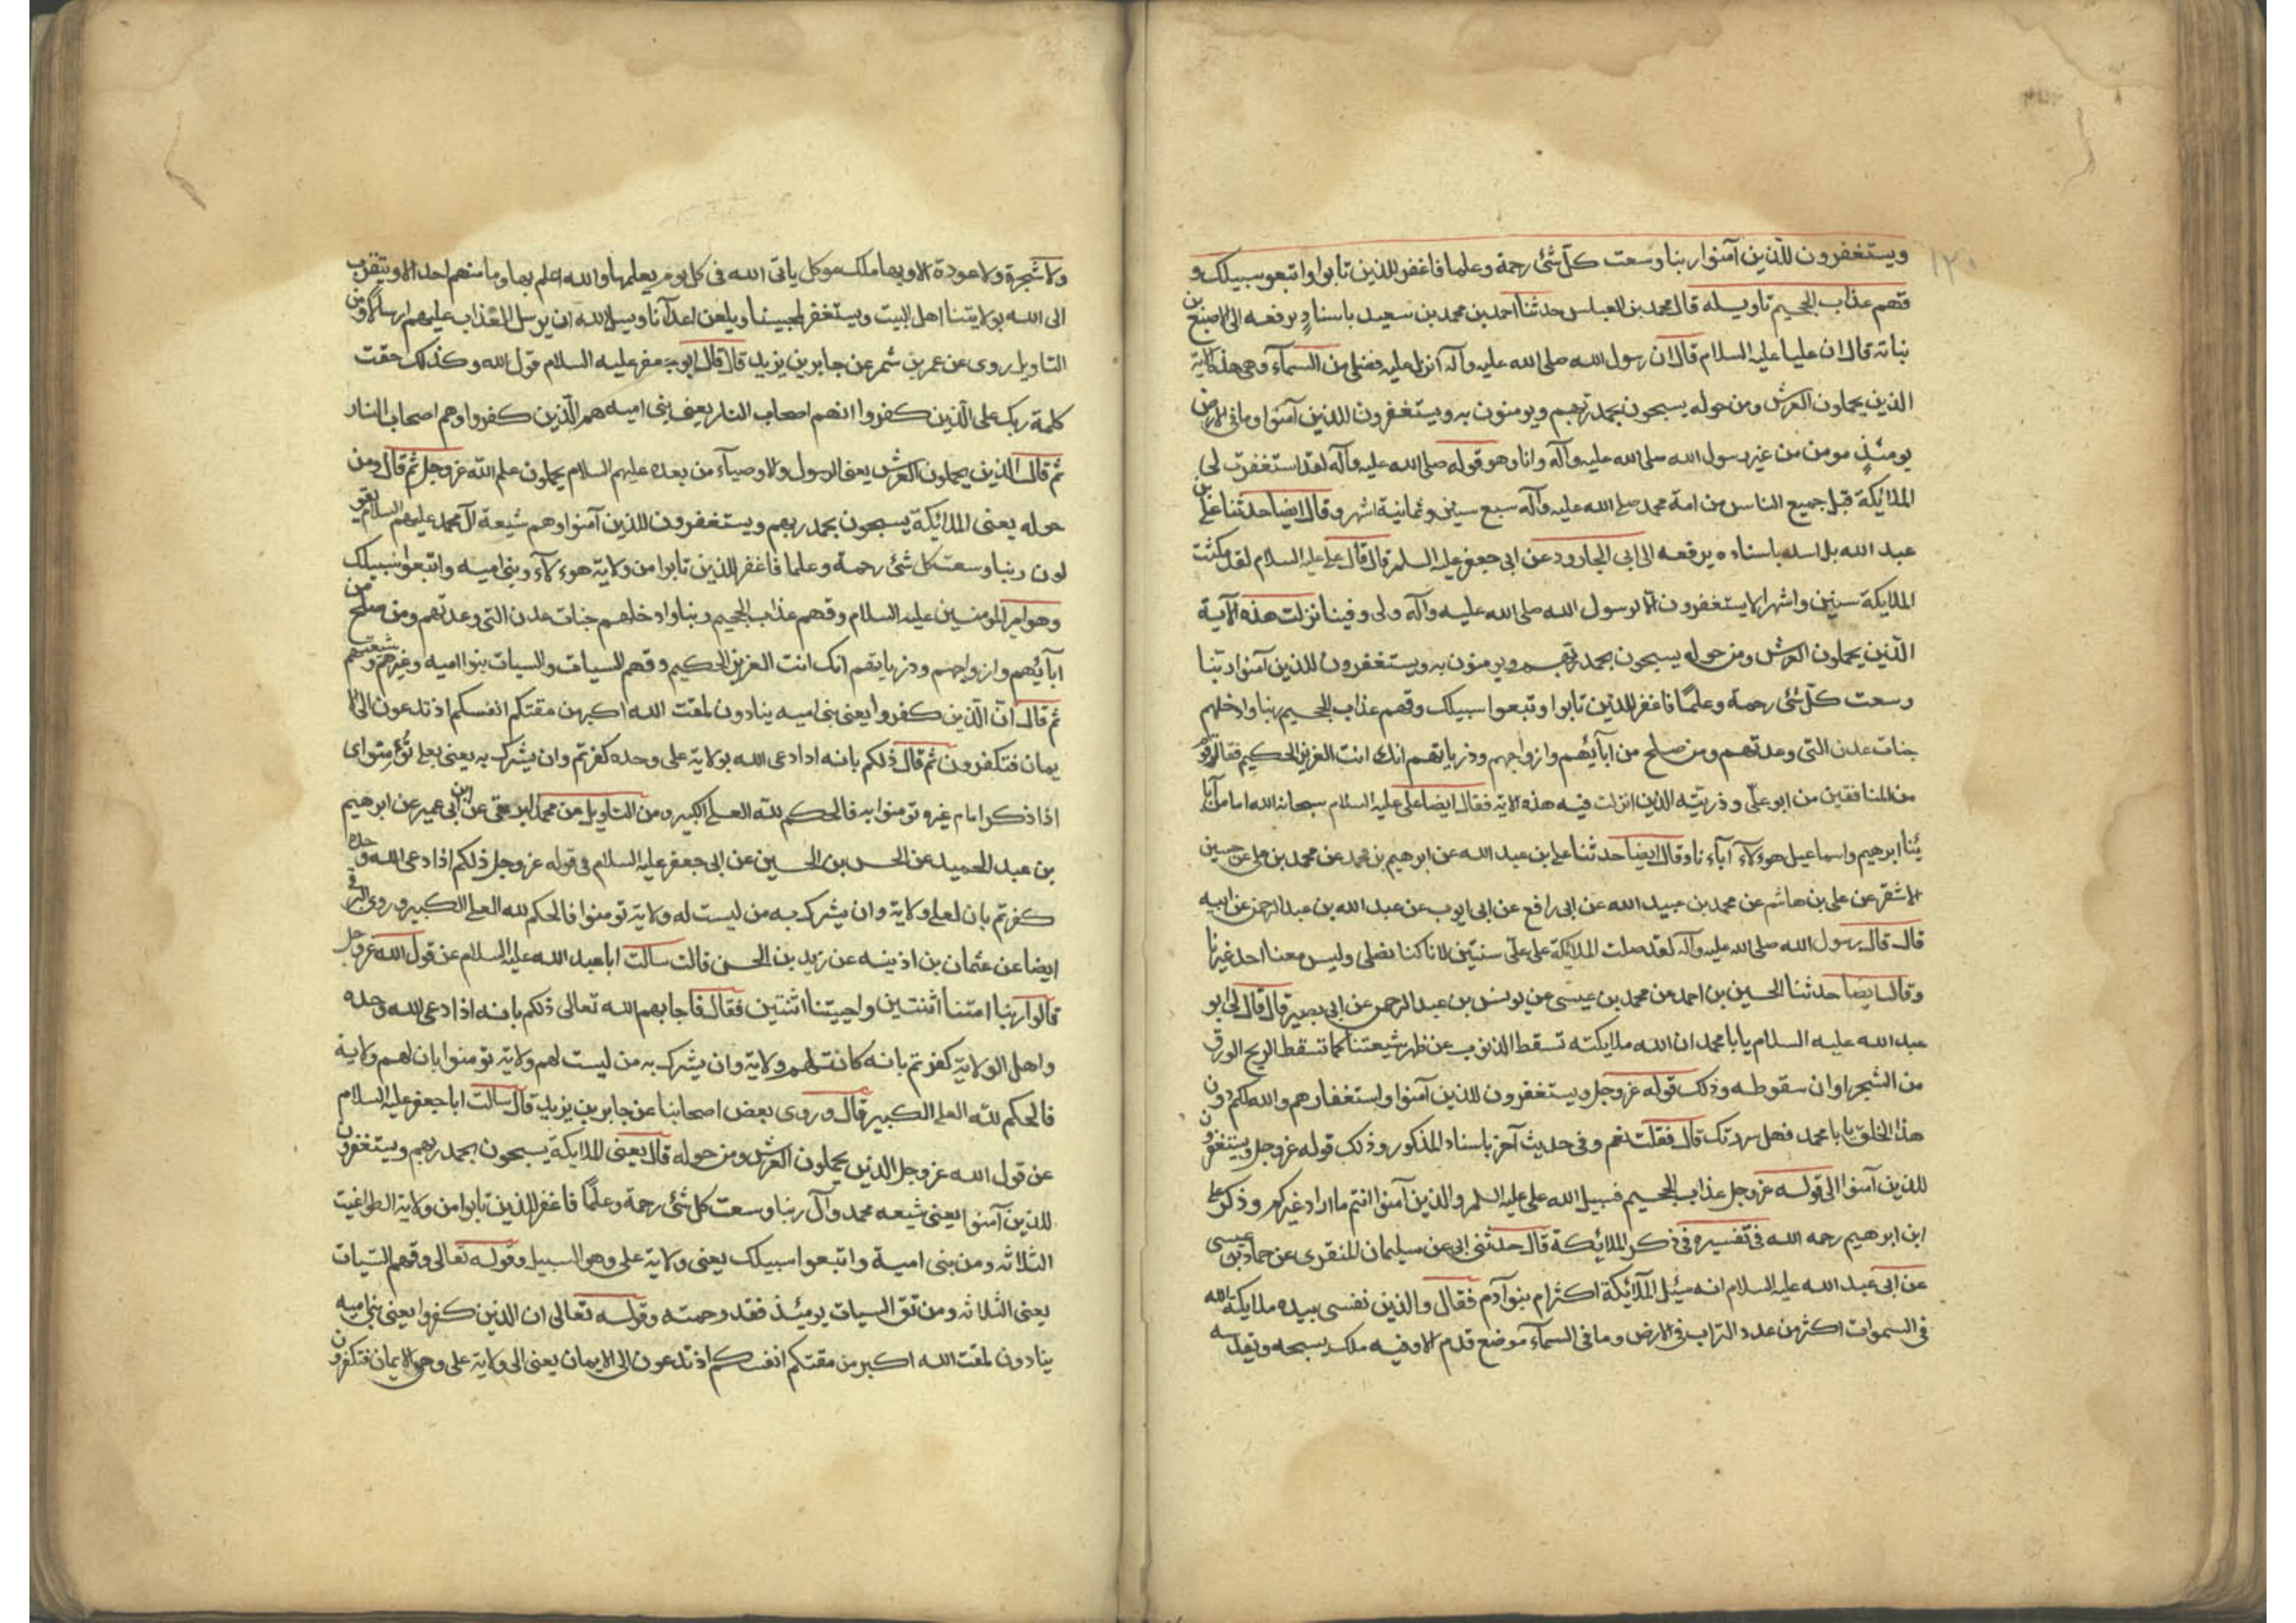 ١٢٠
ويستغفرون للذين آمنوا ربنا وسعت كل شئ رحمة وعلما فاغفر للذين تابوا واتبعو سبيلك و
قهم عذاب الجحيم تاويله قال محمد بن العباس حدثنا احمد بن محمد بن سعيد باسناد يرفعه الى الاصبغ بن
نباته قال ان عليا عليه السلام قال ان رسول الله صلى الله عليه وآله انزل عليه فضلى من السماء وهى هذه الاية
الذين يحملون العرش ومن حوله يسبحون بحمد ربهم ويومنون به ويستغفرون للذين آمنوا وما فى الارض
يومئذ مومن من غير رسول الله صلى الله عليه وآله وانا وهو قوله صلى الله عليه وآله لقد استغفرت لى
الملائكة قبل جميع الناس من امة محمد صلى الله عليه وآله سبع سنين وثمانية اشهر وقال ايضا حدثنا على بن
عبد الله بن اسد باسناده يرفعه الى ابى الجارود عن ابى جعفر عليه السلم قال قال على عليه السلام لقد مكثت
الملايكة سنين واشهرا لا يستغفرون الا لرسول الله صلى الله عليه وآله ولى وفينا نزلت هذه الآية
الذين يحملون العرش ومن حوله يسبحون بحمد ربهم ويومنون به ويستغفرون للذين آمنوا ربنا
وسعت كل شئ رحمة وعلما فاغفر للذين تابوا وتبعوا سبيلك وقهم عذاب الجحيم ربنا وادخلهم
جنات عدن التى وعدتهم ومن صلح من ابآئهم وازواجهم وذرياتهم انك انت العزيز الحكيم فقال قوم
من المنافقين من ابو على وذريته الذين انزلت فيه هذه الاية فقال ايضا على عليه السلام سبحان الله اما من آبا
ئنا ابرهيم واسماعيل هوءلآء آباءنا وقال ايضا حدثنا على بن عبد الله عن ابرهيم بن محمد عن محمد بن على عن حسين
الاشقر عن على بن هاشم عن محمد بن عبيد الله عن ابى رافع عن ابى ايوب عن عبد الله بن عبد الرحمن عن ابيه
قال قال رسول الله صلى الله عليه وآله لقد صلت الملايكة على على سنتين لانا كنا نصلى وليس معنا احد غيرنا
وقال ايضا حدثنا الحسين بن احمد عن محمد بن عيسى عن يونس بن عبد الرحمن عن ابى بصير قال قال لى ابو
عبد الله عليه السلام يابا محمد ان الله ملايكته تسقط الذنوب عن ظهر شيعتنا كما تسقط الريح الورق
من الشجر اوان سقوطه وذلك قوله عز وجل ويستغفرون للذين آمنوا واستغفارهم والله لكم دون
هذا الخلق يابا محمد فهل سررتك قال فقلت نعم وفى حديث آخر باسناد المذكور وذلك قوله عز وجل ويستغفرون
للذين آمنوا الى قوله عز وجل عذاب الجحيم فسبيل الله على عليه السلم والذين آمنوا انتم ما اراد غيركم وذكر على
ابن ابرهيم رحمه الله فى تفسيره فى ذكر الملائكة قال حدثنى ابى عن سليمان المنقرى عن حماد بن عيسى
عن ابى عبد الله عليه السلام انه سئل الملآئكة اكثر ام بنو آدم فقال والذين نفسى بيده ملايكة الله
فى السموات اكثر من عدد التراب فى الارض وما فى السمآء موضع قدم الا وفيه ملك يسبحه ويقدسه
ولا شجرة ولا عودة الا وبها ملك موكل ياتى الله فى كل يوم يعلمها والله اعلم بها وما منهم احد الا ويتقرب
الى الله بولايتنا اهل البيت ويستغفر لمحبينا ويلعن اعدآنا ويسل الله ان يرسل العذاب عليهم ارسالا ومن
التاويل روى عن عمر بن شمر عن جابر بن يزيد قال قال ابو جعفر عليه السلام قول الله وكذلك حقت
كلمة ربك على الذين كفروا انهم اصحاب النار يعنى بنى اميه هم الذين كفروا وهم اصحاب النار
ثم قال الذين يحملون العرش يعنى الرسول والاوصيآء من بعده عليهم السلام يحملون علم الله عز وجل ثم قال ومن
حوله يعنى الملائكة يسبحون بحمد ربهم ويستغفرون للذين آمنوا وهم شيعة آل محمد عليهم السلام يقو
لون ربنا وسعت كل شئ رحمة وعلما فاغفر للذين تابوا من ولاية هوءلآء وبنى اميه واتبعوا سبيلك
وهو امير المومنين عليه السلام وقهم عذاب الجحيم ربنا وادخلهم جنات عدن التى وعدتهم ومن صلح من
ابآئهم وازواجهم وذرياتهم انك انت العزيز الحكيم وقهم السيات والسيات بنوا اميه وغيرهم وشيعتهم
ثم قال ان الذين كفروا يعنى بنى اميه ينادون لمقت الله اكبر من مقتكم انفسكم اذ تدعون الى الا
يمان فتكفرون ثم قال ذلكم بانه اذا دعى الله بولاية على وحده كفرتم وان يشرك به يعنى بعلى تؤمنوا اى
اذا ذكر امام غيره تومنوا به فالحكم لله العلى الكبير ومن التاويل عن محمد البرقى عن ابن ابى عمير عن ابرهيم
بن عبد الحميد عن الحسن بن الحسين عن ابى جعفر عليه السلام فى قوله عز وجل ذلكم اذا دعى الله وحده
كفرتم بان لعلى ولاية وان يشرك به من ليست له ولاية تومنوا فالحكم لله العلى الكبير وروى البرقى
ايضا عن عثمان بن اذينه عن زيد بن الحسن قالت سالت ابا عبد الله عليه السلام عن قول الله عز وجل
قالوا ربنا امتنا اثنتين واحييتنا اثنتين فقال فاجابهم الله تعالى ذلكم بانه اذا دعى الله وحده
واهل الولاية كفرتم بانه كانت لهم ولاية وان يشرك به من ليست لهم ولاية تومنوا بان لهم ولاية
فالحكم لله العلى الكبير قال وروى بعض اصحابنا عن جابر بن يزيد قال سالت ابا جعفر عليه السلام
عن قول الله عز وجل الذين يحملون العرش ومن حوله قال يعنى الملايكة يسبحون بحمد ربهم ويستغفرون
للذين آمنوا يعنى شيعه محمد وآل ربنا وسعت كل شئ رحمة وعلما فاغفر للذين تابوا من ولاية الطواغيت
الثلاثه ومن بنى امية واتبعوا سبيلك يعنى ولاية على وهو السبيل وقوله تعالى وقهم السيات
يعنى الثلاثه ومن تق السيات يومئذ فقد رحمته وقوله تعالى ان الذين كفروا يعنى بنى اميه
ينادون لمقت الله اكبر من مقتكم انفسكم اذ تدعون الى الايمان يعنى الى ولاية على وهى الايمان فتكفرون